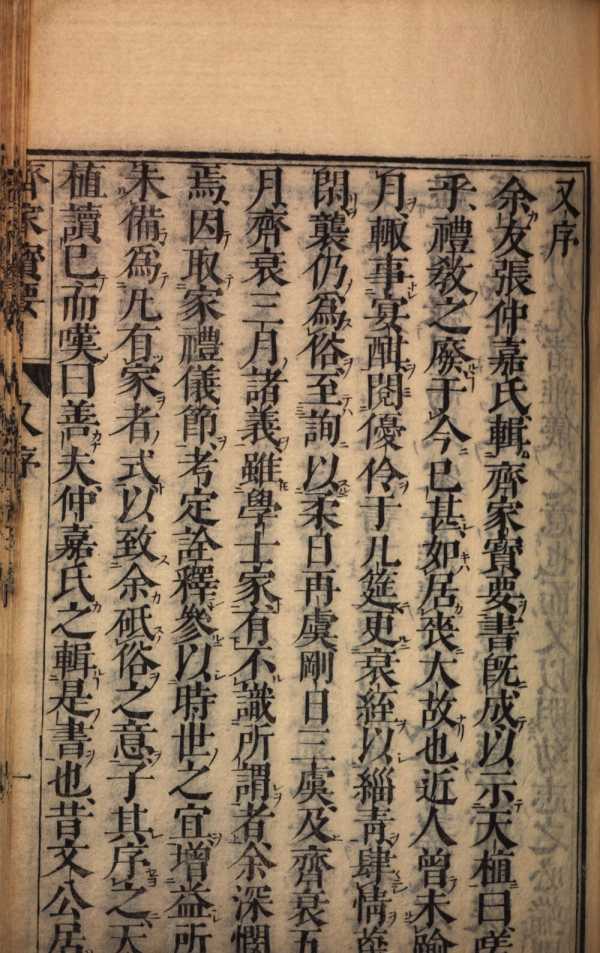 又序
余友張仲嘉氏輯齊家寶要書既成以示天植曰嗟
乎禮敎之廢于今已甚如居喪大故也近人曾未踰
月輒事宴酣閱優伶于几筵更衰絰以緇靑肆情
閉襲仍爲俗至詢以柔日再虞剛日三虞及齊衰五
月齊衰三月諸義雖學士家有不識所謂者余深憫
焉因取家禮儀節考定詮釋參以時世之宜增益所
未備爲凡有家者式以致余砥俗之意子其序之天
植讀已而嘆曰善夫仲嘉氏之輯是書也昔文公居
齊家寶要 又序 一